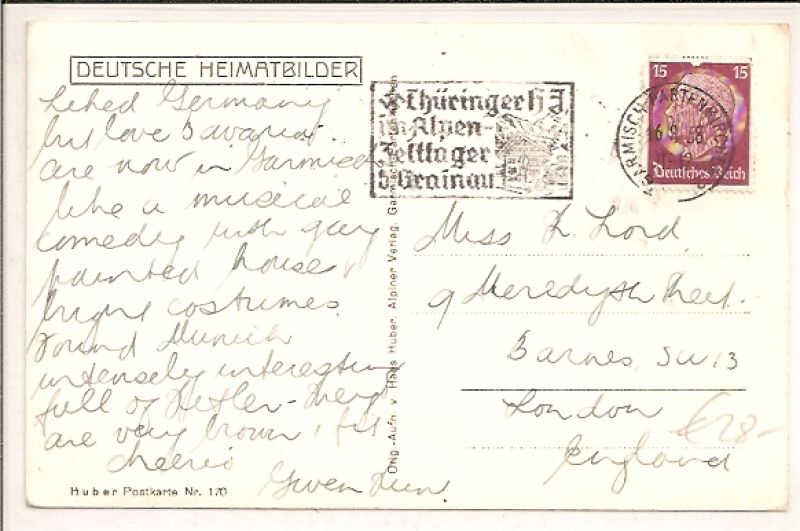 DEUTSCHE HEIMATBILDER
Liked Germany
but love Bavaria.
are now in Garmisch
like a musical
comedy with gay
painted houses
bright costumes.
Found Munich
intensely interesting
full of Hitler - they
are very brown, fit
cheerio
Gwen
Huber Postkarte Nr. 170
Orig.-Aufn. v. Hans Huber, Alpiner Verlag, Garmisch-Partenkirchen
Thüringer HJ
im Alpen-
zeltlager
b. Grainau
GARMISCH-PARTENKIRCHEN
16.9.38
15 15
Deutsches Reich
Miss L. Lord
9 Meredyth Rd.
Barnes SW 13
London
England
€28-